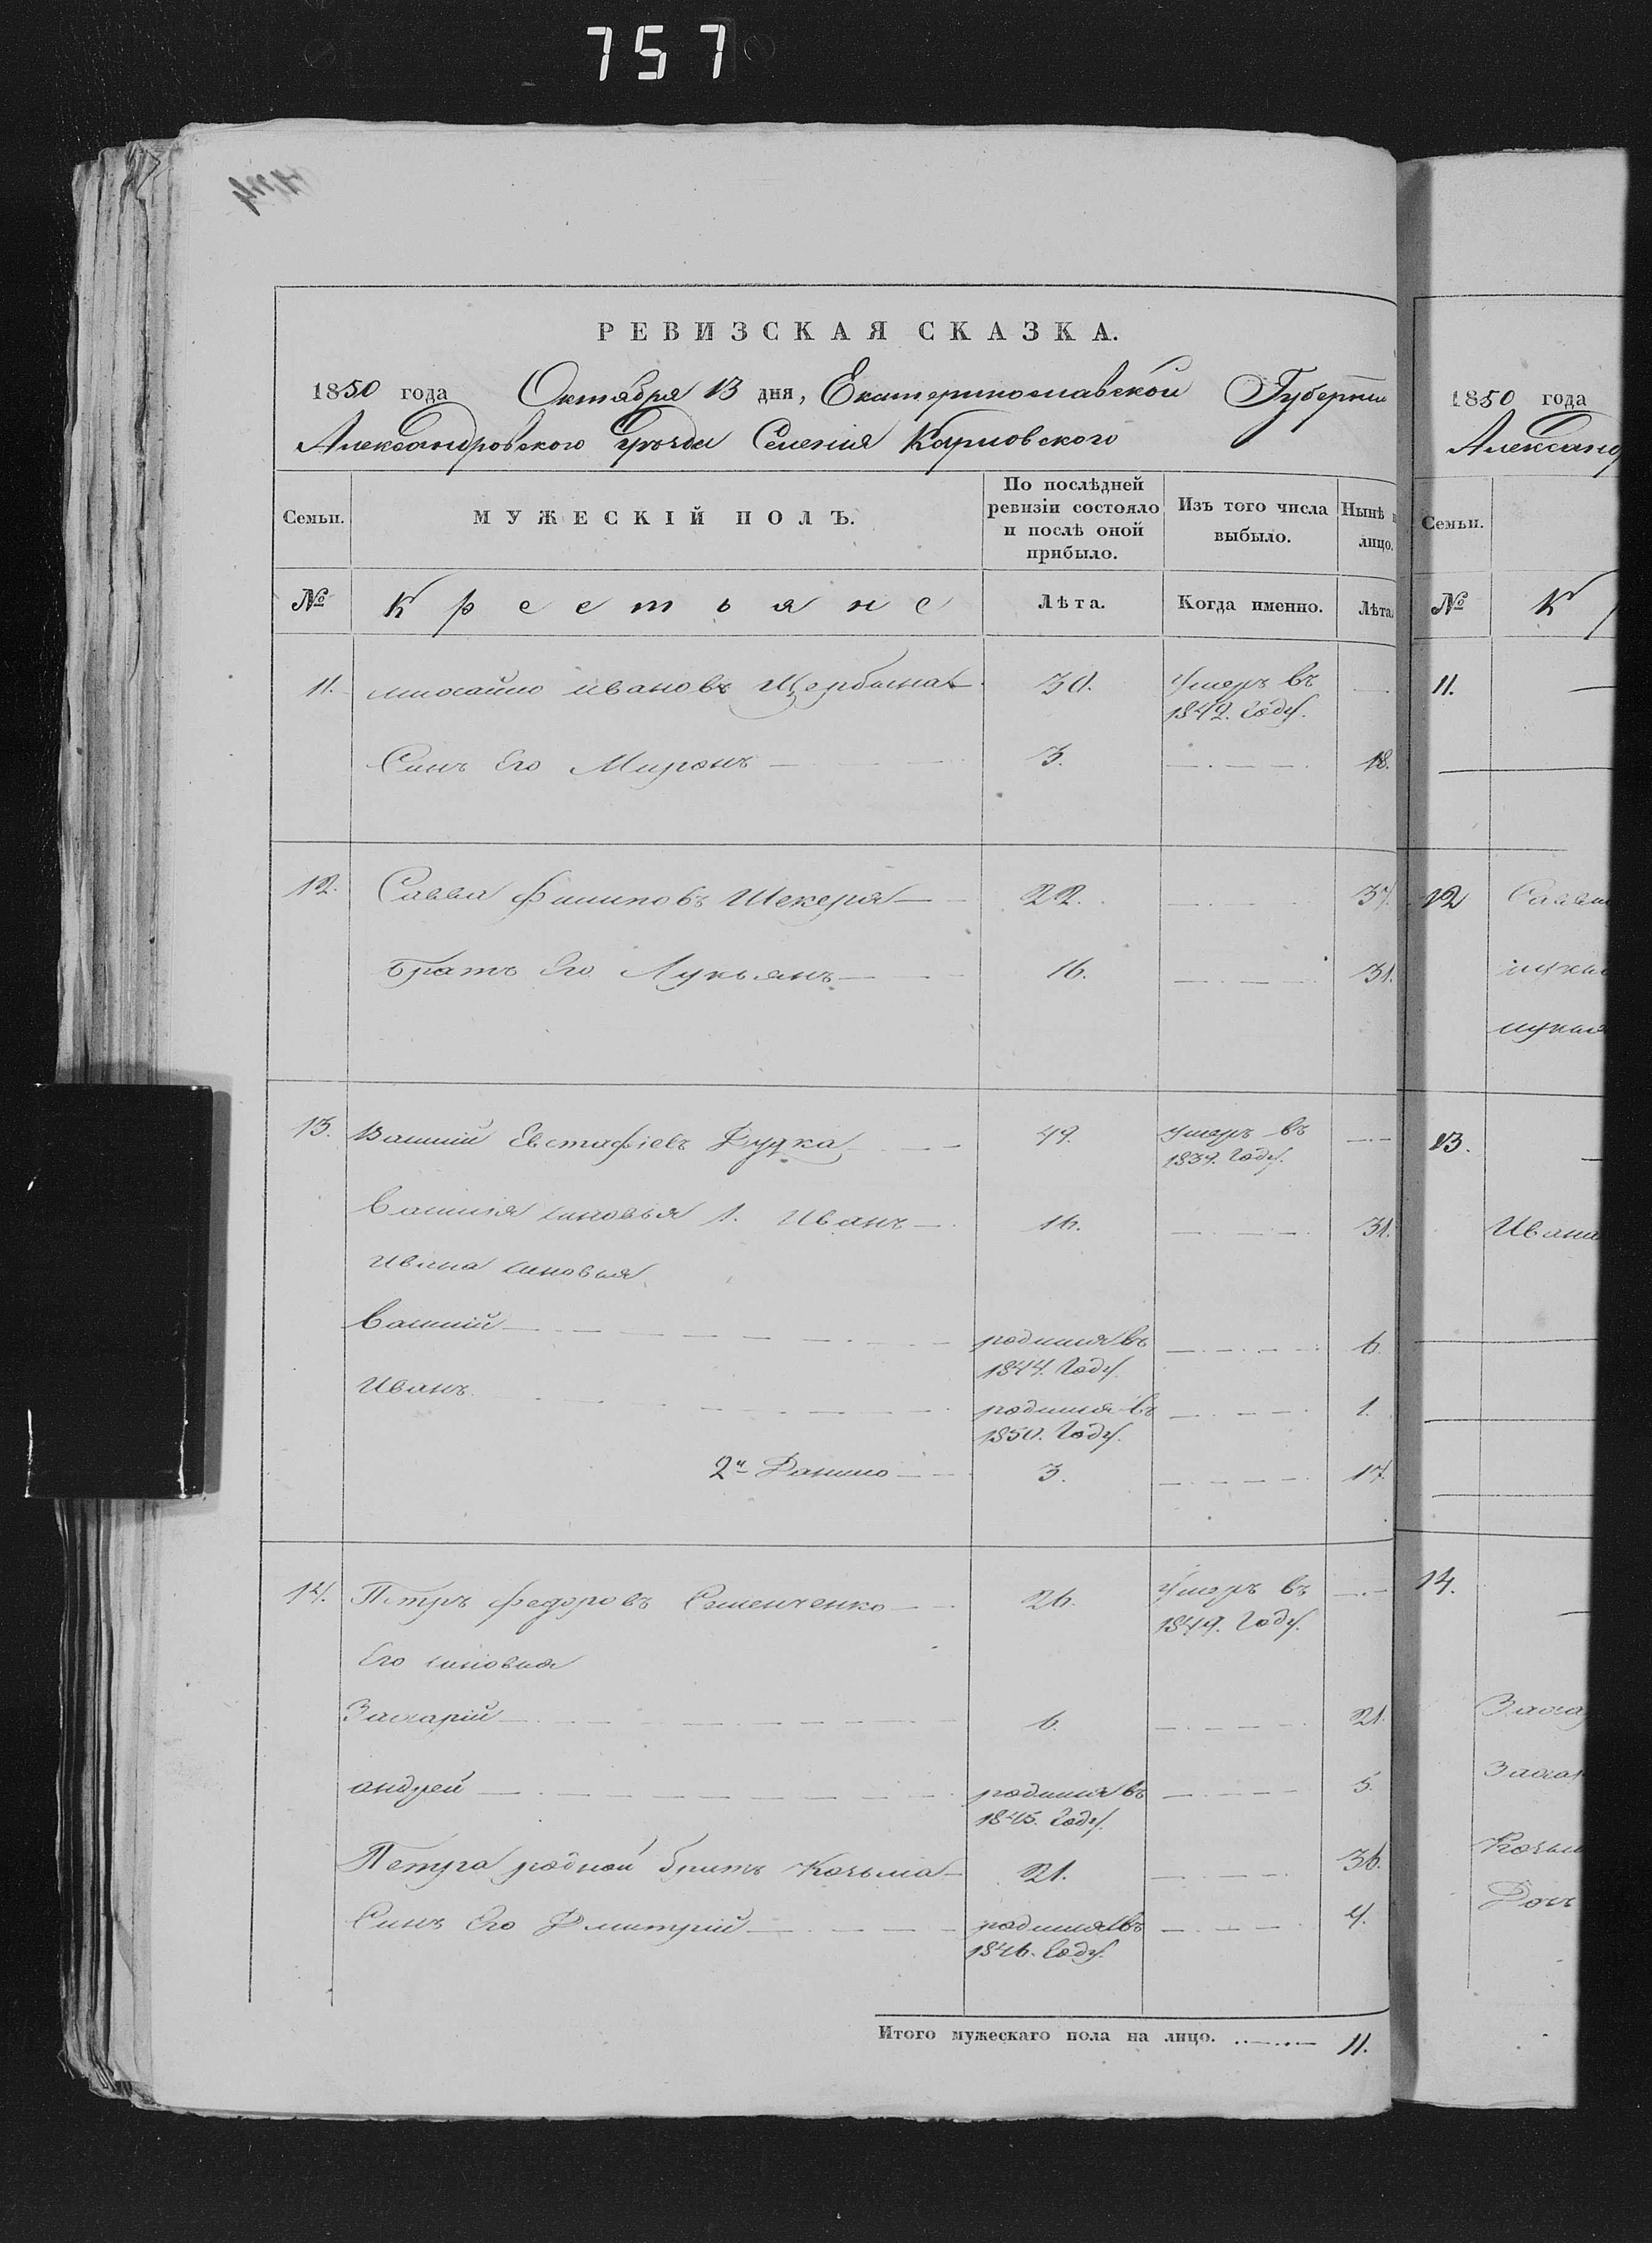 757
РЕВИЗСКАЯ СКАЗКА.
1850 года Октября 13 дня, Екатеринославской Губернии
Александровского Уезда Селения Карповского
Семьи. МУЖЕСКІЙ ПОЛЪ. По послѣдней ревизіи состояло и послѣ оной прибыло. Изъ того числа выбыло. Нынѣ лицо.
№ Крестьяне Лѣта. Когда именно. Лѣта
11. михайло ивановъ Щербина 30. Умеръ въ 1842. Году.
Синъ Его Миронъ 3. 18.
12. Савва Филиповъ Шекеря 22. 37.
братъ Его Лукьянъ 16. 31.
13. Василій Евстафіевъ Дудка 49. умеръ въ 1837. Году.
Василія синовья 1. Иванъ 16. 31.
Ивана синовья
Василій родился въ 1844. Году 6.
Иванъ родился въ 1850. Году. 1.
2й Данило 3. 17.
14. Петръ федоровъ Семенченко 26. Умеръ въ 1849. Году.
Его синовья
Захарій 6. 21.
андрей родился въ 1845. Году. 5.
Петра родной братъ Козьма 21. 36.
Синъ Его Дмитрій родился въ 1846. Году. 4.
Итого мужескаго пола на лицо. 11.
1850 года
Александ
Семьи.
№ К
11.
12 Савв
13.
Ивана
14.
Заха
Заха
Козьм
Доч